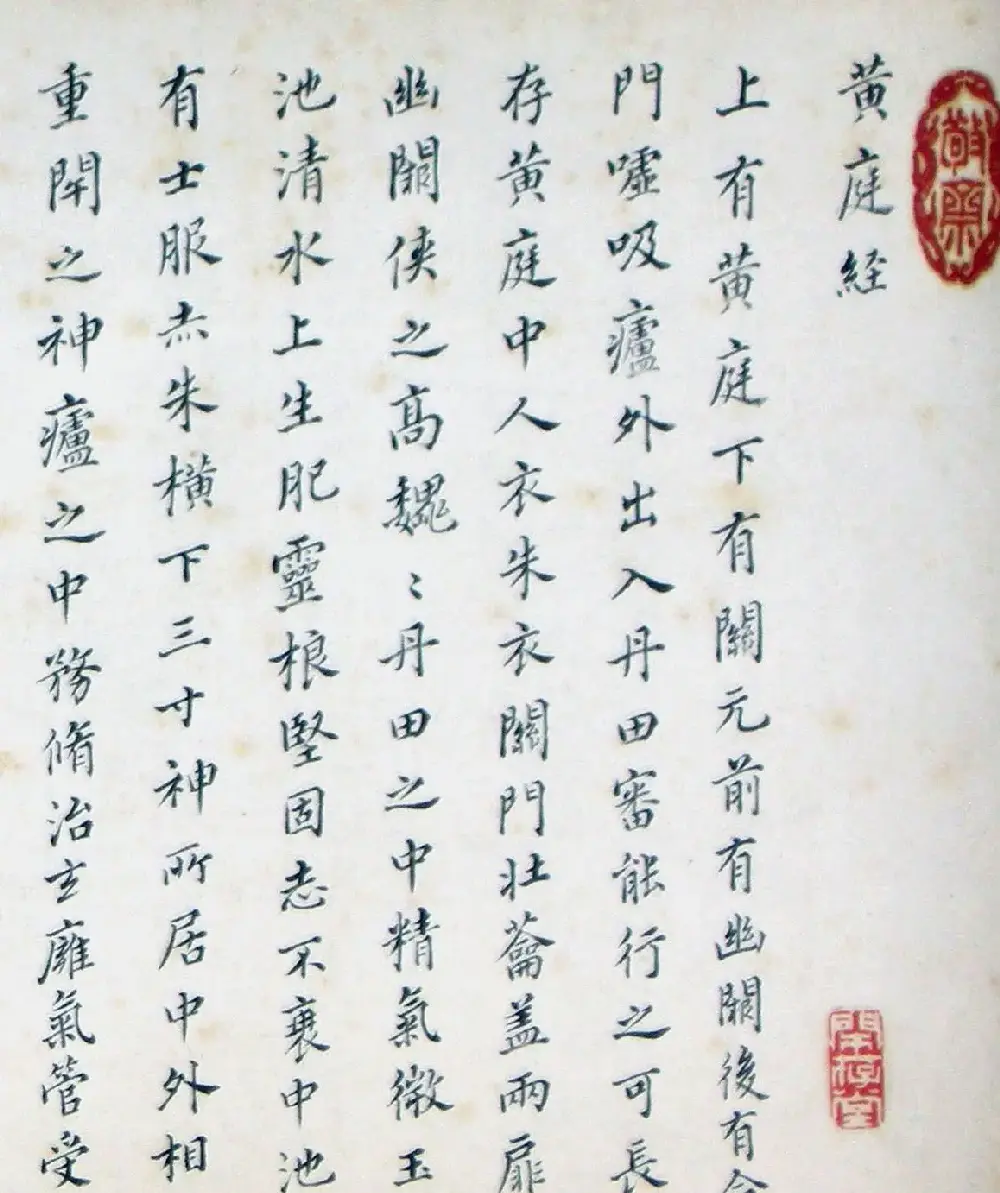 黄庭経
上有黄庭下有關元前有幽闕後有命
門噓吸廬外出入丹田審能行之可長
存黄庭中人衣朱衣關門壮蘥盖兩扉
幽闕侠之高魏〻丹田之中精氣微玉
池清水上生肥靈根堅固志不衰中池
有士服赤朱橫下三寸神所居中外相
重閇之神廬之中務脩治玄廱氣管受
敬齋
閑存堂